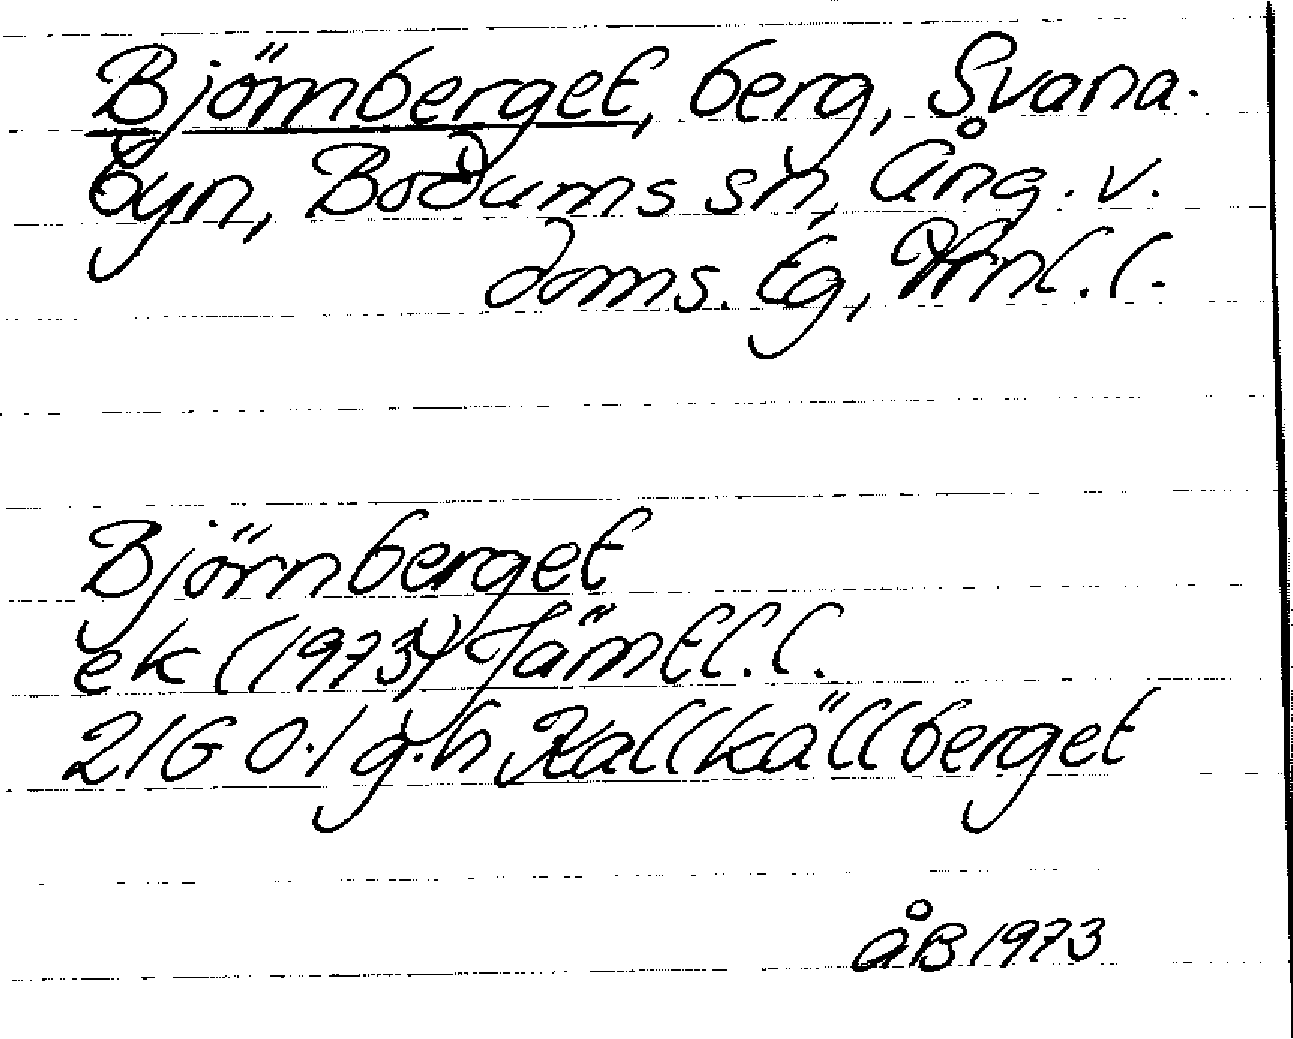 Björnberget, berg, Svana-
byn, Bodums sn, Ång. v.
doms. tg, Jmtl. l.
Björnberget
ek (1973) Jämtl. l.
21G 0-1 g.h Kallkällberget
ÅB 1973